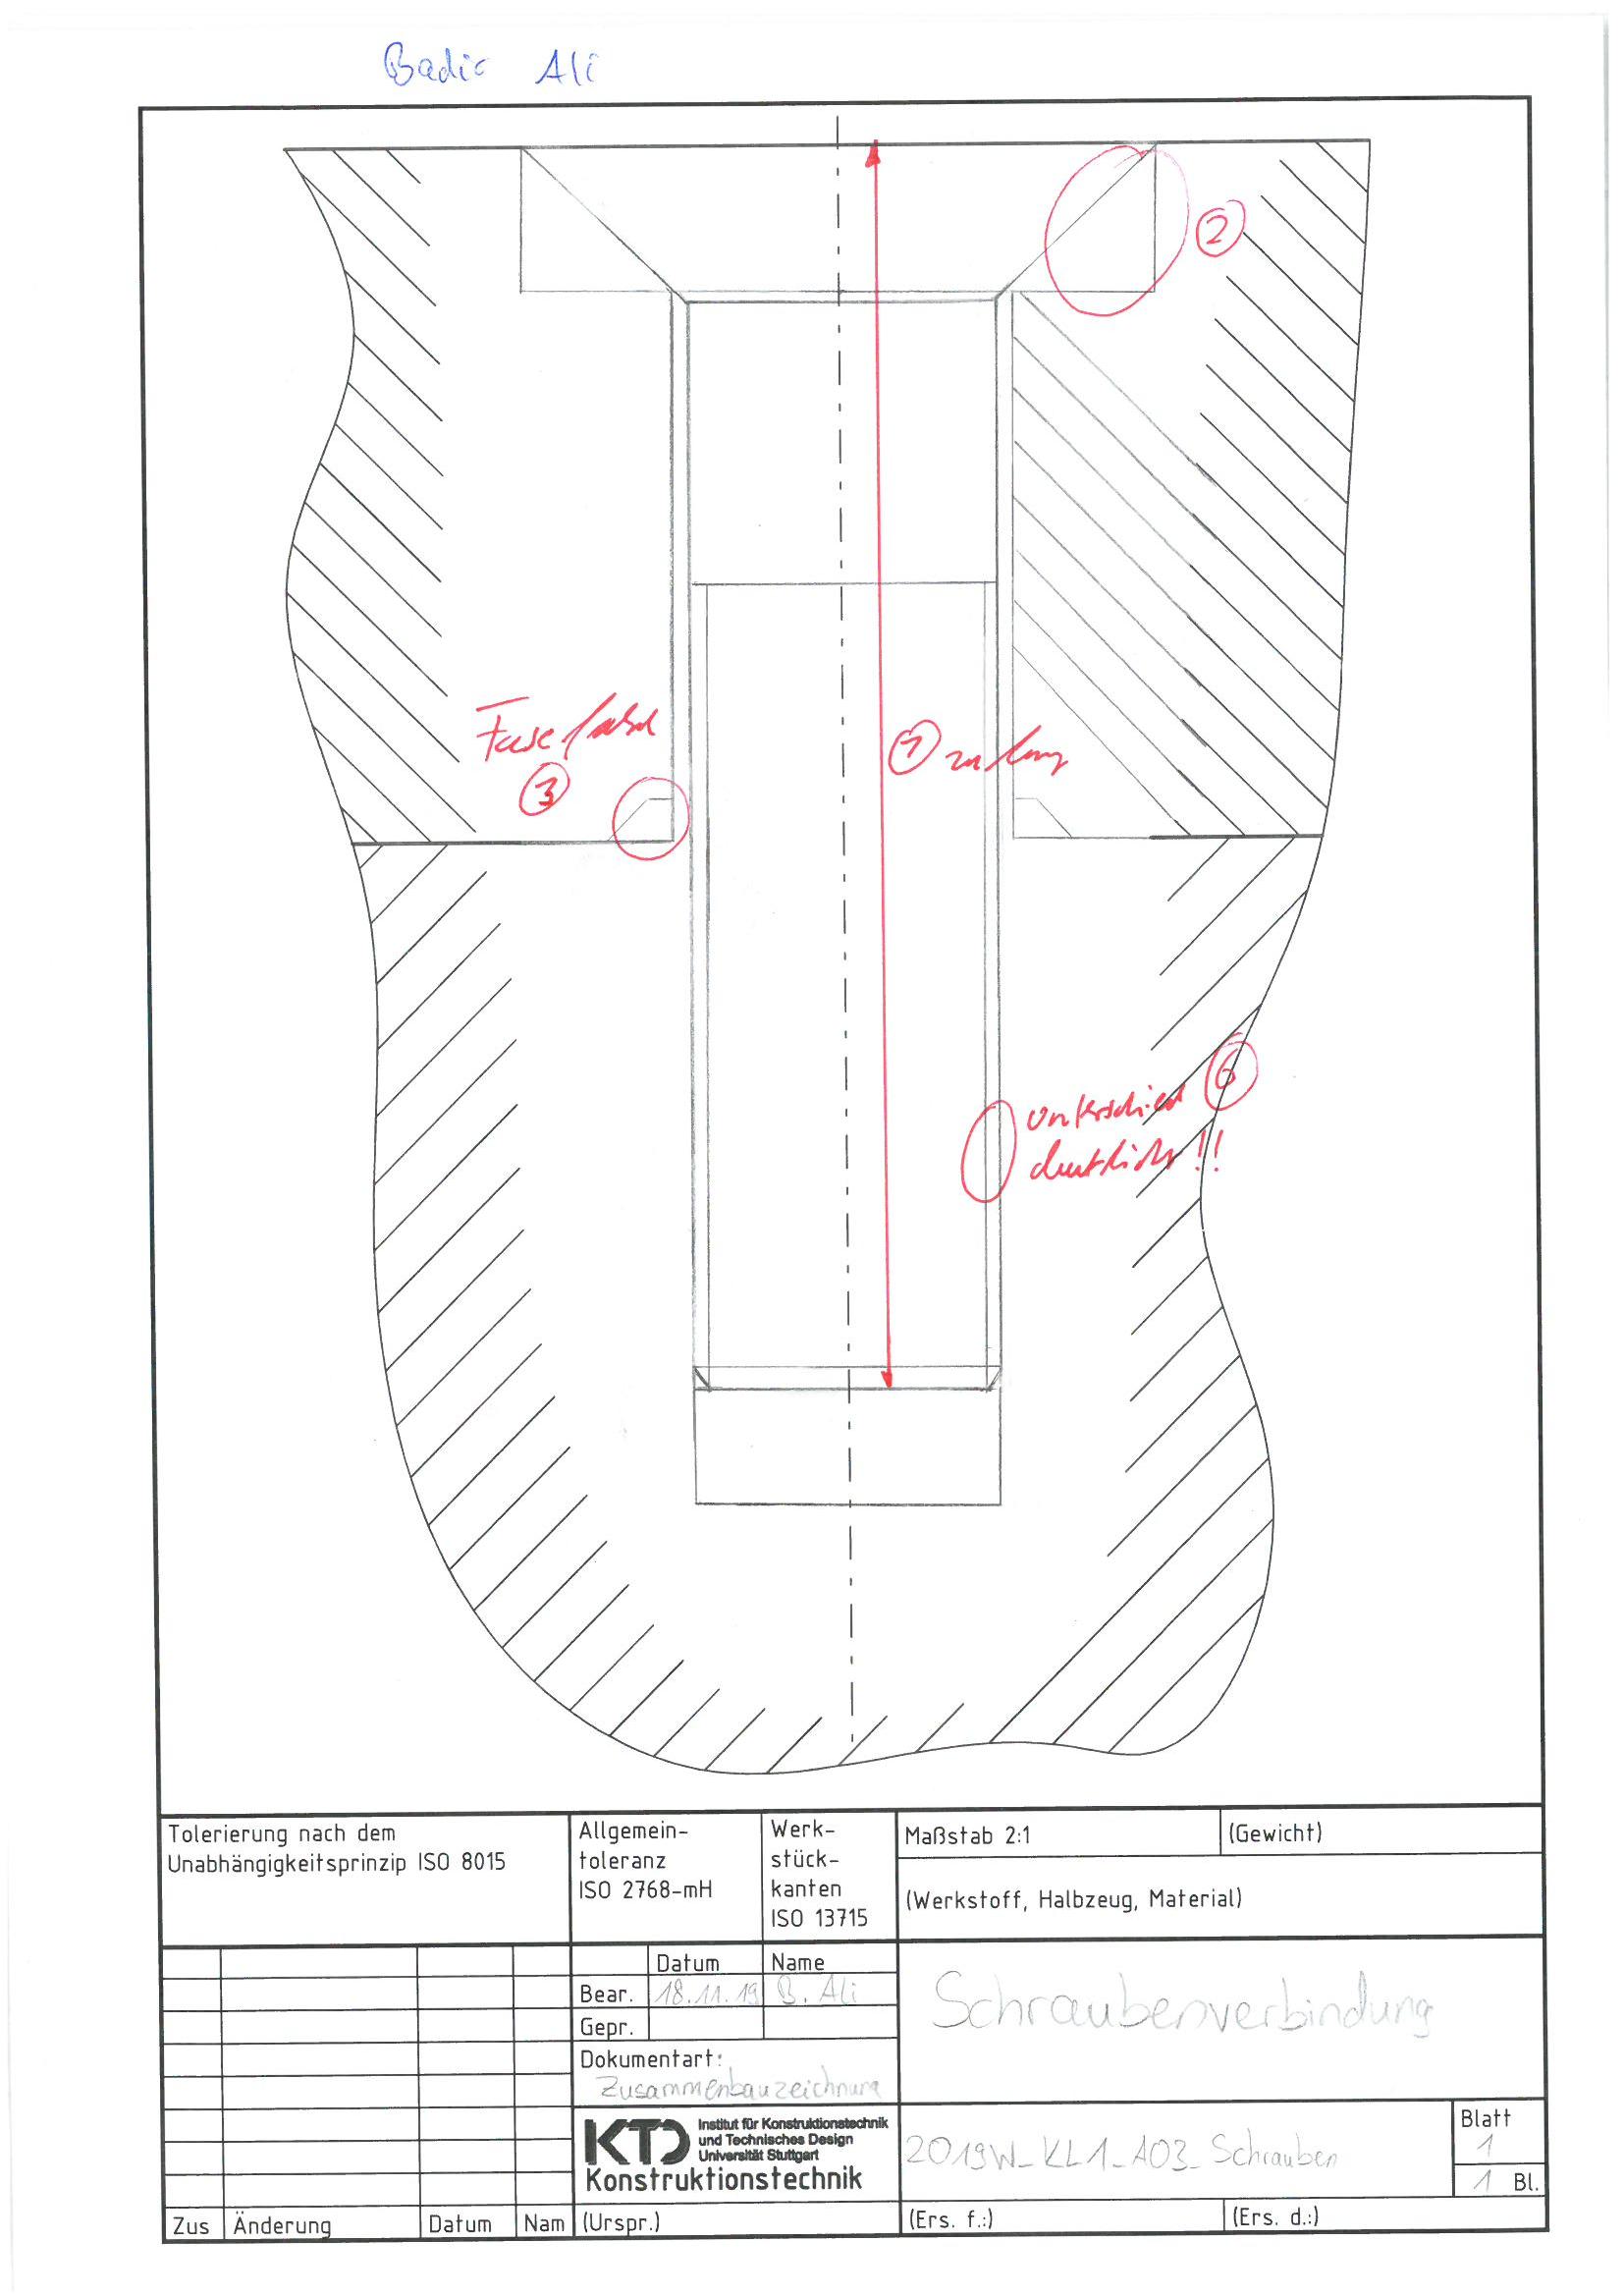 Badie Ali
②
Fase falsch
③
① zu lang
⑥
Unterschied
deutlich!!
Tolerierung nach dem
Unabhängigkeitsprinzip ISO 8015
Allgemein-
toleranz
ISO 2768-mH
Werk-
stück-
kanten
ISO 13715
Maßstab 2:1
(Gewicht)
(Werkstoff, Halbzeug, Material)
Datum Name
Bear. 18.11.19 B. Ali
Gepr.
Dokumentart:
Zusammenbauzeichnung
Schraubenverbindung
KTD Institut für Konstruktionstechnik
und Technisches Design
Universität Stuttgart
Konstruktionstechnik
2019W_KL1_A03_Schrauben
Blatt
1
1 Bl.
Zus Änderung Datum Nam (Urspr.) (Ers. f.:) (Ers. d.:)